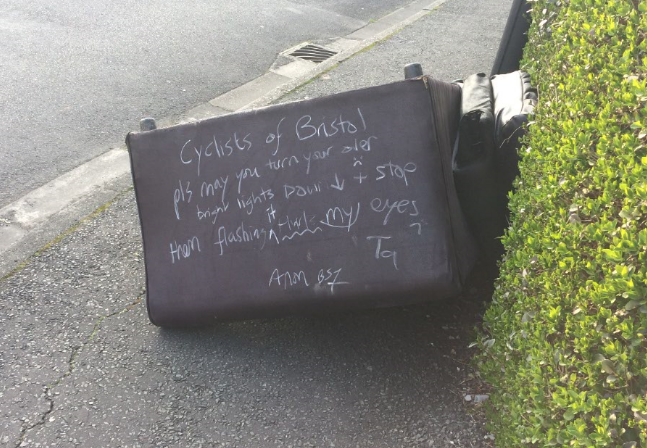 Cyclists of Bristol
pls may you turn your over
bright lights DOWN ↓ + stop
them flashing it my eyes
Ta
Anon BS7